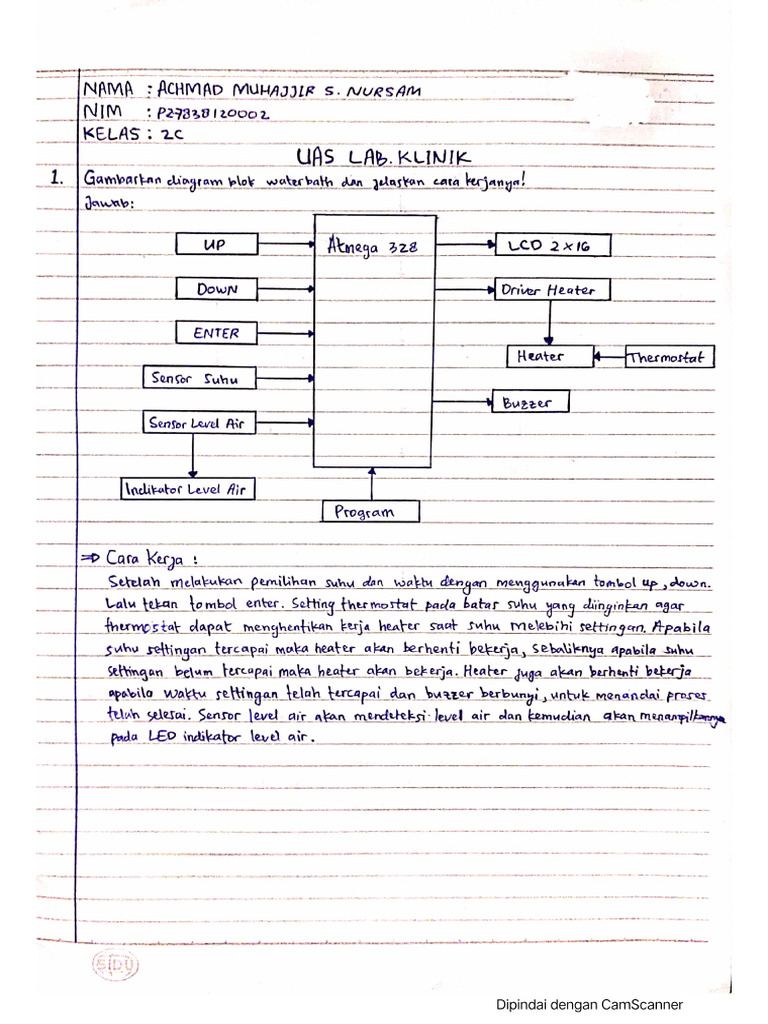 NAMA : ACHMAD MUHAJJIR S. NURSAM
NIM : P27838120002
KELAS : 2C
UAS LAB. KLINIK
1. Gambarkan diagram blok waterbath dan jelaskan cara kerjanya!
Jawab:
UP
Atmega 328
LCD 2x16
DOWN
Driver Heater
ENTER
Heater
Thermostat
Sensor Suhu
Buzzer
Sensor Level Air
Indikator Level Air
Program
⇒ Cara Kerja :
Setelah melakukan pemilihan suhu dan waktu dengan menggunakan tombol up, down.
Lalu tekan tombol enter. Setting thermostat pada batas suhu yang diinginkan agar
thermostat dapat menghentikan kerja heater saat suhu melebihi settingan. Apabila
suhu settingan tercapai maka heater akan berhenti bekerja, sebaliknya apabila suhu
settingan belum tercapai maka heater akan bekerja. Heater juga akan berhenti bekerja
apabila waktu settingan telah tercapai dan buzzer berbunyi, untuk menandai proses
telah selesai. Sensor level air akan mendeteksi level air dan kemudian akan menampilkannya
pada LED indikator level air.
SIDU
Dipindai dengan CamScanner